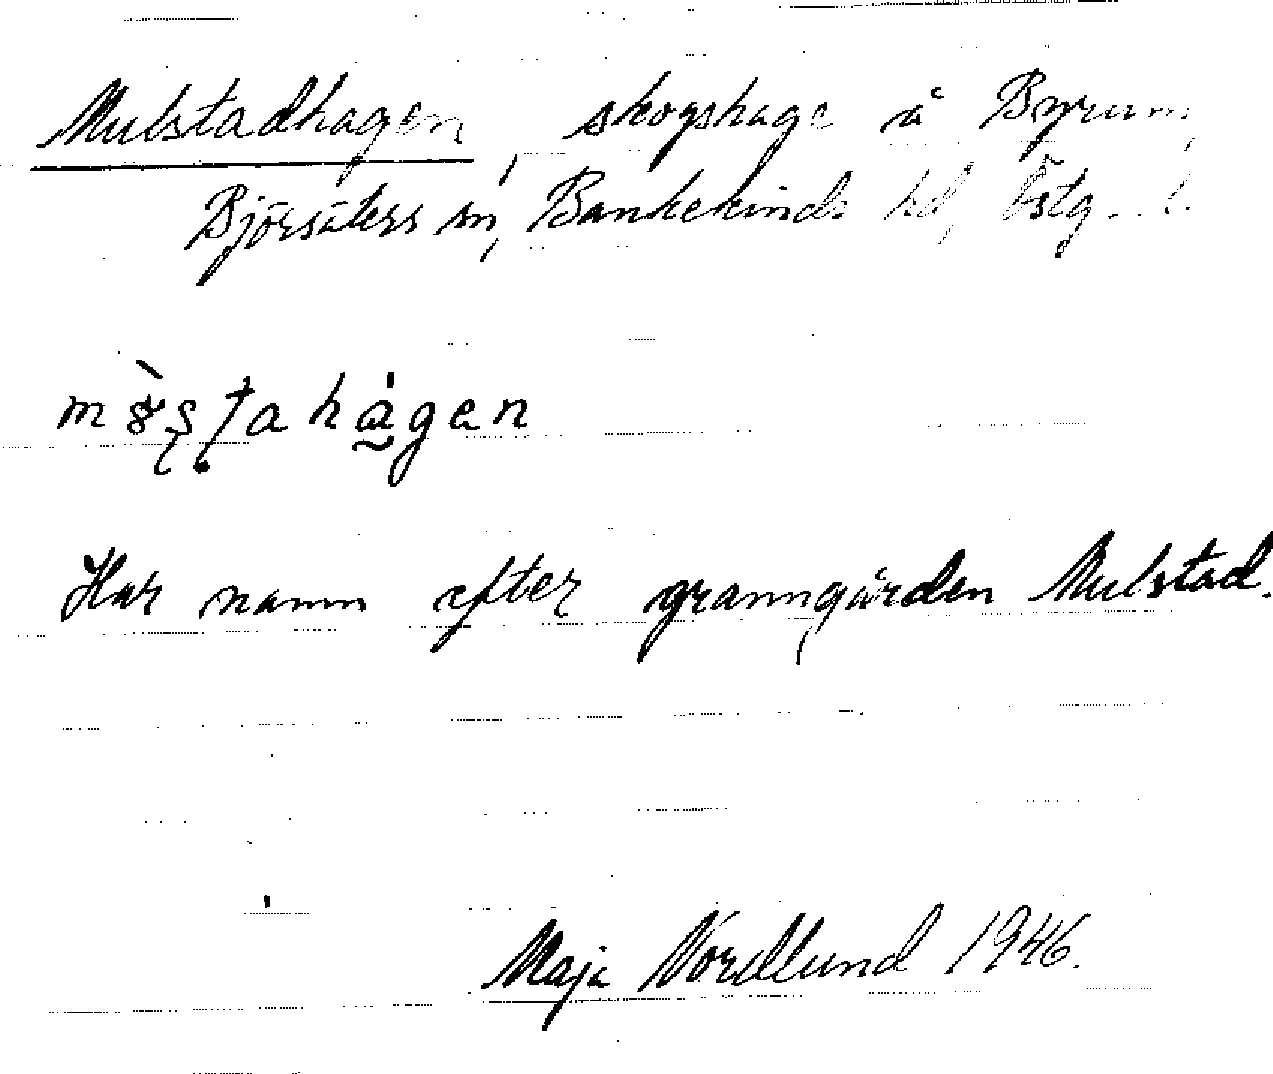 Mulstadhagen, skogshage å Byrum,
Björsäters sn, Bankekinds hd, Östg. l.
mø̀ʂʈahágen
Har namn efter granngården Mulstad.
Maja Nordlund 1946.